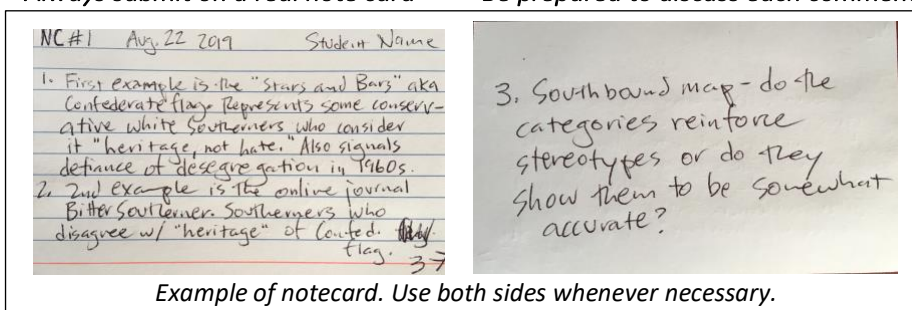 NC#1 Aug. 22 2019 Student Name
1. First example is the "Stars and Bars" aka
Confederate flag. Represents some conserv-
ative white Southerners who consider
it "heritage, not hate." Also signals
defiance of desegregation in 1960s.
2. 2nd example is the online journal
Bitter Southerner. Southerners who
disagree w/ "heritage" of Confed.
flag.
3. Southbound map - do the
categories reinforce
stereotypes or do they
show them to be somewhat
accurate?
Example of notecard. Use both sides whenever necessary.